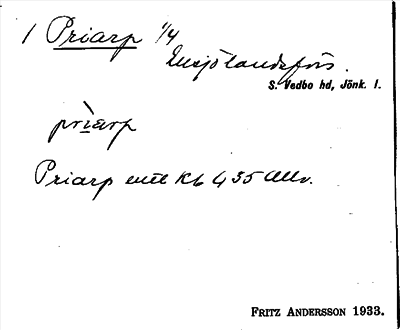 1 Priarp 1/4
Ensjölandsförs.
S. Vedbo hd, Jönk. l.
prìarp
Priarp enl Kb 435 All.
FRITZ ANDERSSON 1933.